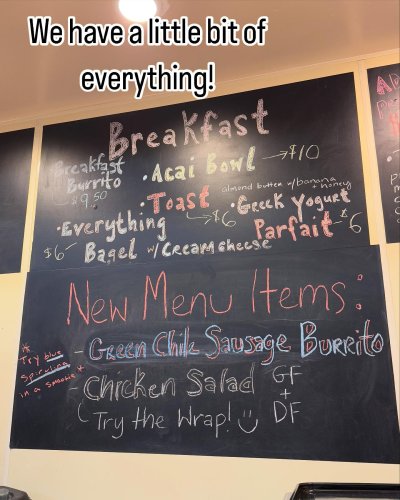 We have a little bit of
everything!
Breakfast
Breakfast
Burrito
$9.50
• Acai Bowl → $10
• Toast
almond butter w/banana
+ honey
→ $6
• Greek Yogurt
Parfait - $6
• Everything
Bagel w/ Cream cheese
$6
New Menu Items:
- Green Chile Sausage Burrito
- Chicken Salad GF
+
DF
Try the Wrap!
Try blue
spirulina
in a smoothie